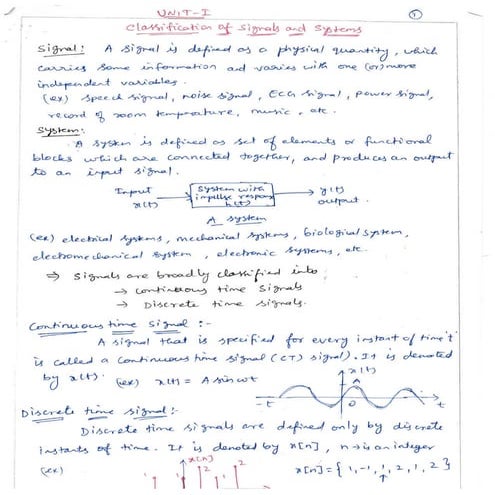 UNIT-I
1
Classification of Signals and Systems
Signal: A signal is defined as a physical quantity, which
carries some information and varies with one (or) more
independent variables.
(ex) speech signal, noise signal, ECG signal, power signal,
record of room temperature, music, etc.
System:
A system is defined as set of elements or functional
blocks which are connected together, and produces an output
to an input signal.
Input System with y(t)
x(t) impulse respons output.
h(t)
A system
(ex) electrical systems, mechanical systems, biological system,
electromechanical system, electronic systems, etc.
⇒ Signals are broadly classified into
→ continuous time signals
→ Discrete time signals.
Continuous time signal :-
A signal that is specified for every instant of time 't'
is called a continuous time signal (CT) signal). It is denoted
by x(t). (ex) x(t) = A sin ωt
x(t)
-t 0 t
Discrete time signal:-
Discrete time signals are defined only by discrete
instants of time. It is denoted by x[n], n → is an integer
(ex) x[n] x[n] = { 1, -1, 1, 2, 1, 2 }
1 1 2 1 2